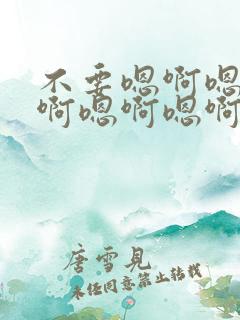 不要嗯啊嗯
啊嗯啊嗯啊
唐雪见
未经同意禁止转载